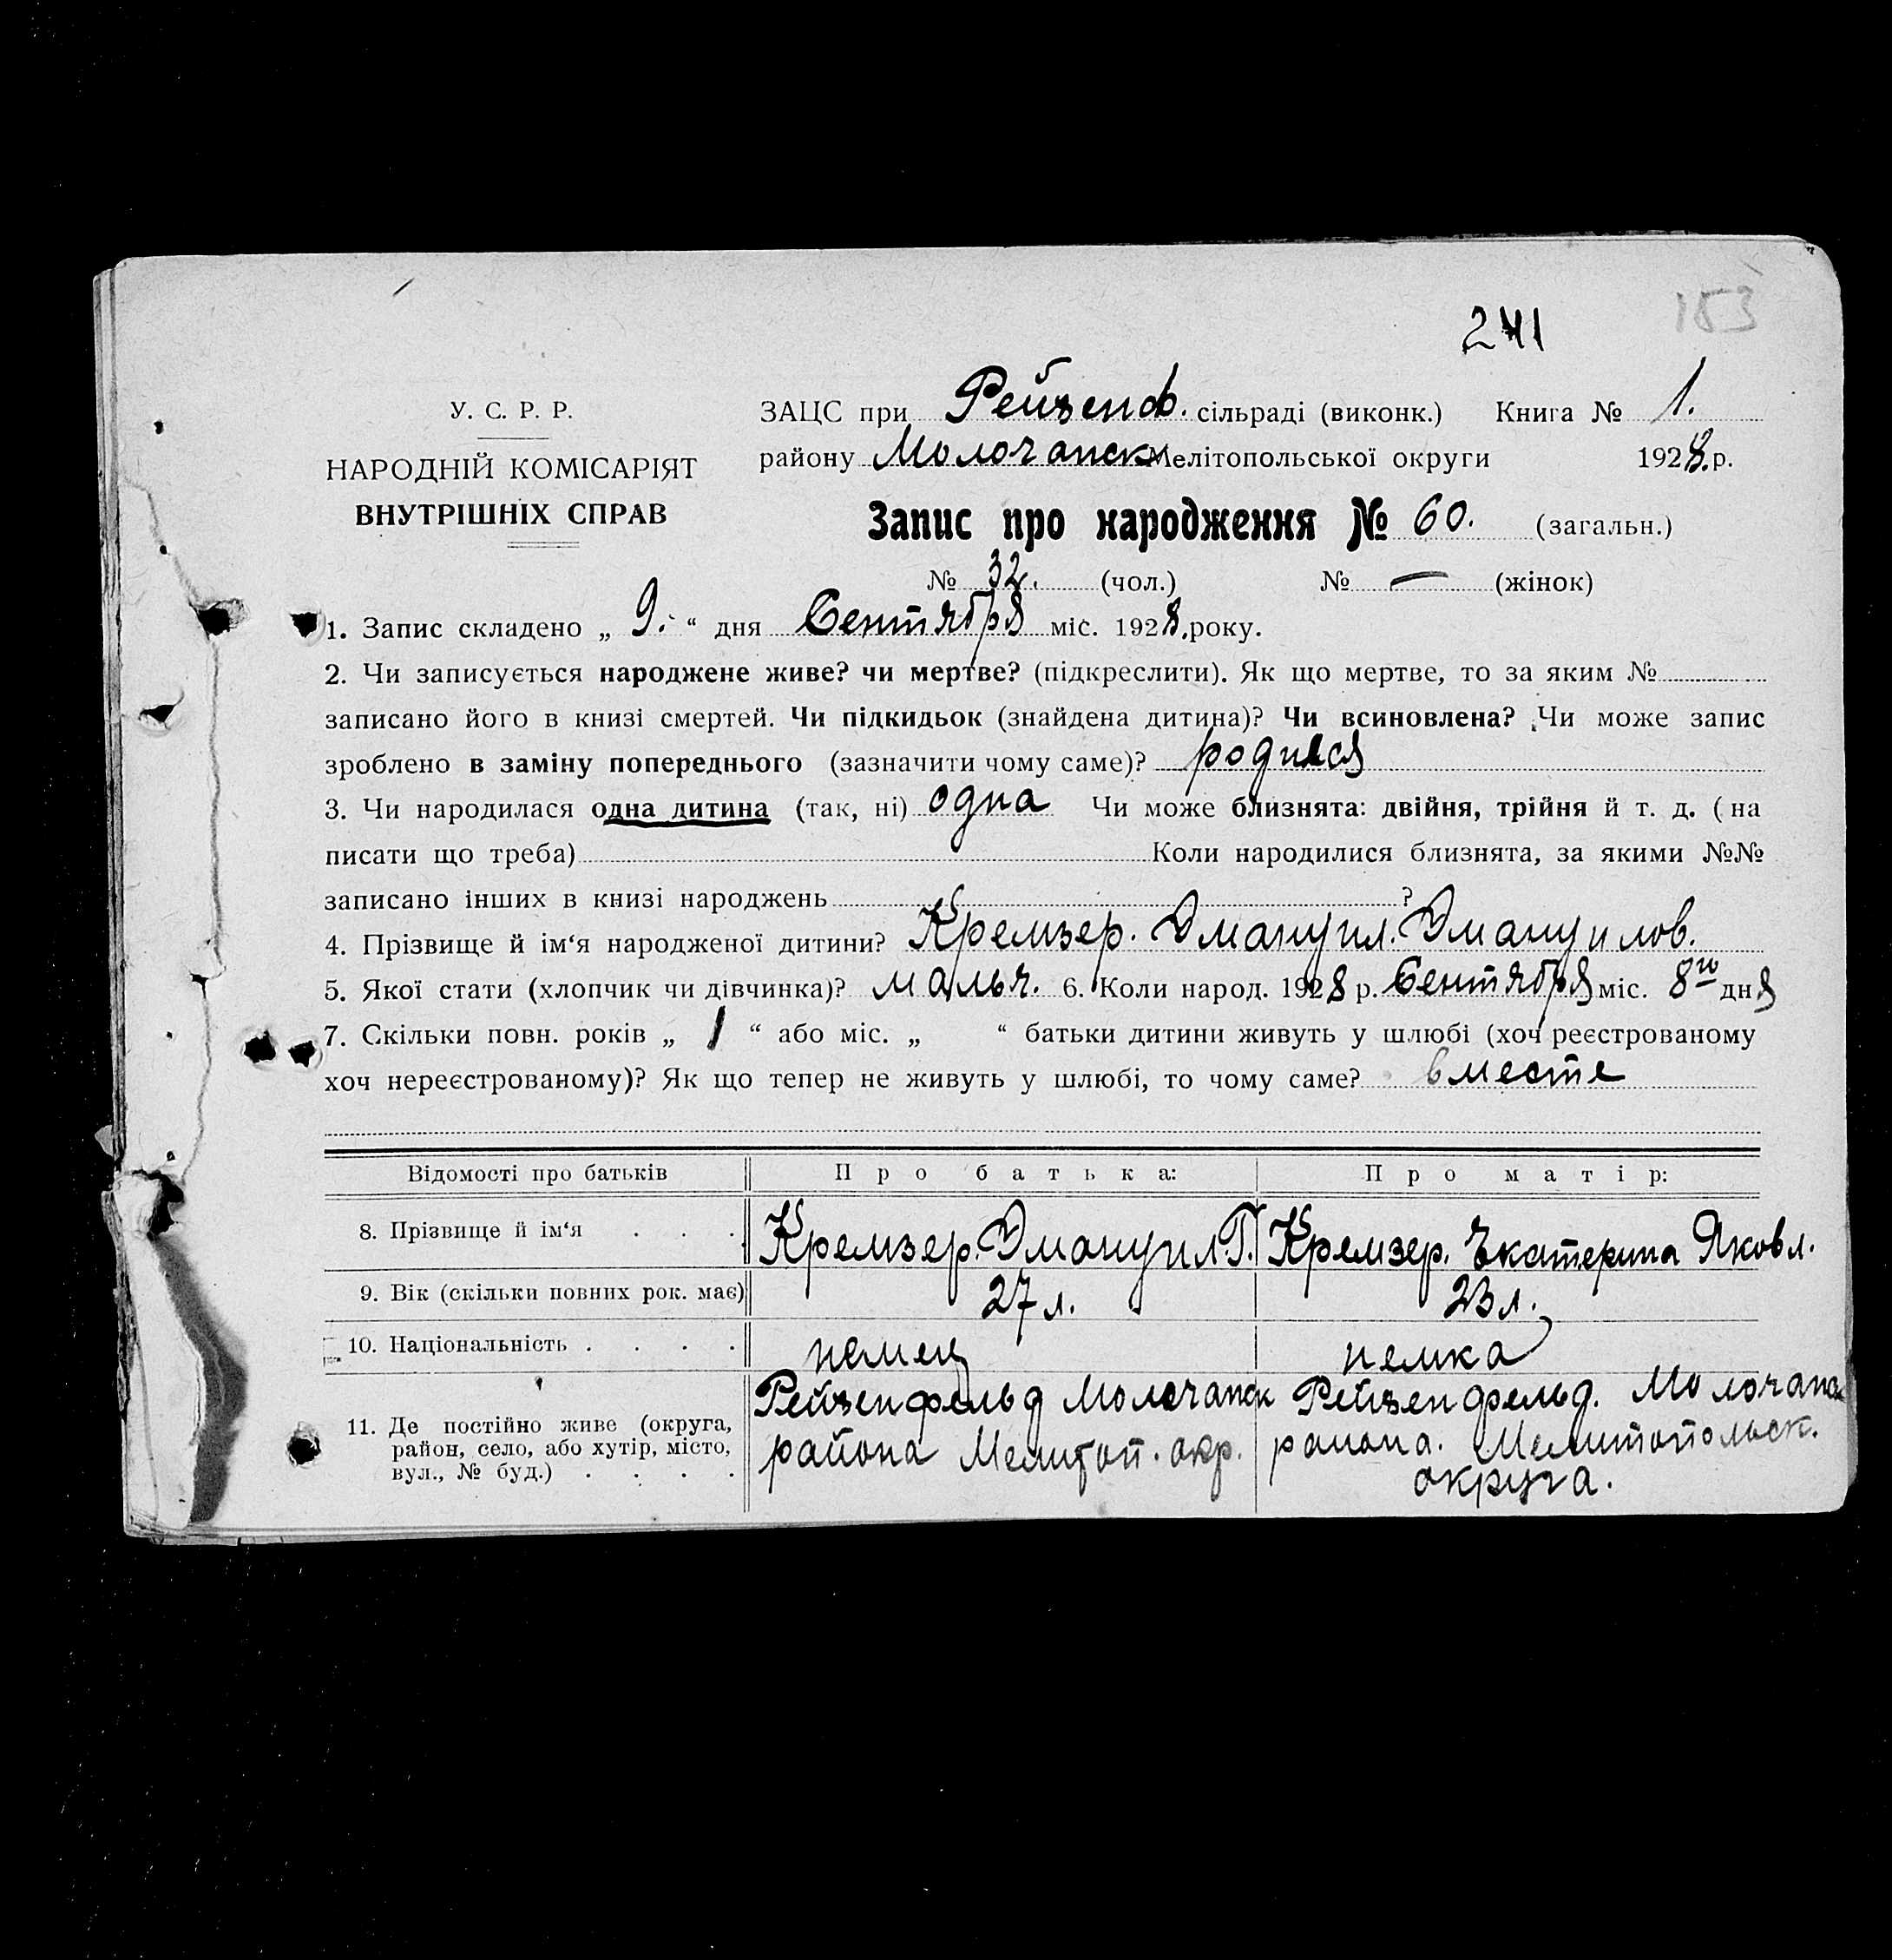 153
241
У. С. Р. Р.
НАРОДНІЙ КОМІСАРІЯТ
ВНУТРІШНІХ СПРАВ
ЗАЦС при Рейзенф. сільраді (виконк.) Книга № 1.
району Молочанск Мелітопольської округи 1928.р.
Запис про народження № 60. (загальн.)
№ 32. (чол.) № — (жінок)
1. Запис складено „ 9. “ дня Сентября міс. 1928.року.
2. Чи записується народжене живе? чи мертве? (підкреслити). Як що мертве, то за яким №
записано його в книзі смертей. Чи підкидьок (знайдена дитина)? Чи всиновлена? Чи може запис
зроблено в заміну попереднього (зазначити чому саме)? родился
3. Чи народилася одна дитина (так, ні) одна Чи може близнята: двійня, трійня й т. д. (на
писати що треба) Коли народилися близнята, за якими №№
записано інших в книзі народжень ?
4. Прізвище й ім‘я народженої дитини? Кремзер. Эмануил. Эмануилов.
5. Якої стати (хлопчик чи дівчинка)? мальч. 6. Коли народ. 1928 р. Сентября міс. 8го дня
7. Скільки повн. років „ 1 “ або міс. „ “ батьки дитини живуть у шлюбі (хоч реєстрованому
хоч нереєстрованому)? Як що тепер не живуть у шлюбі, то чому саме? вместе
Відомості про батьків Про батька: Про матір:
8. Прізвище й ім‘я . . . Кремзер. Эмануил Г. Кремзер. Екатерина Яковл.
9. Вік (скільки повних рок. має) 27 л. 23 л.
10. Національність . . . . немец немка
11. Де постійно живе (округа, район, село, або хутір, місто, вул., № буд.) . . . .
Рейзенфельд Молочанск района Мелитоп. окр.
Рейзенфельд. Молочанск района. Мелитопольск. округа.